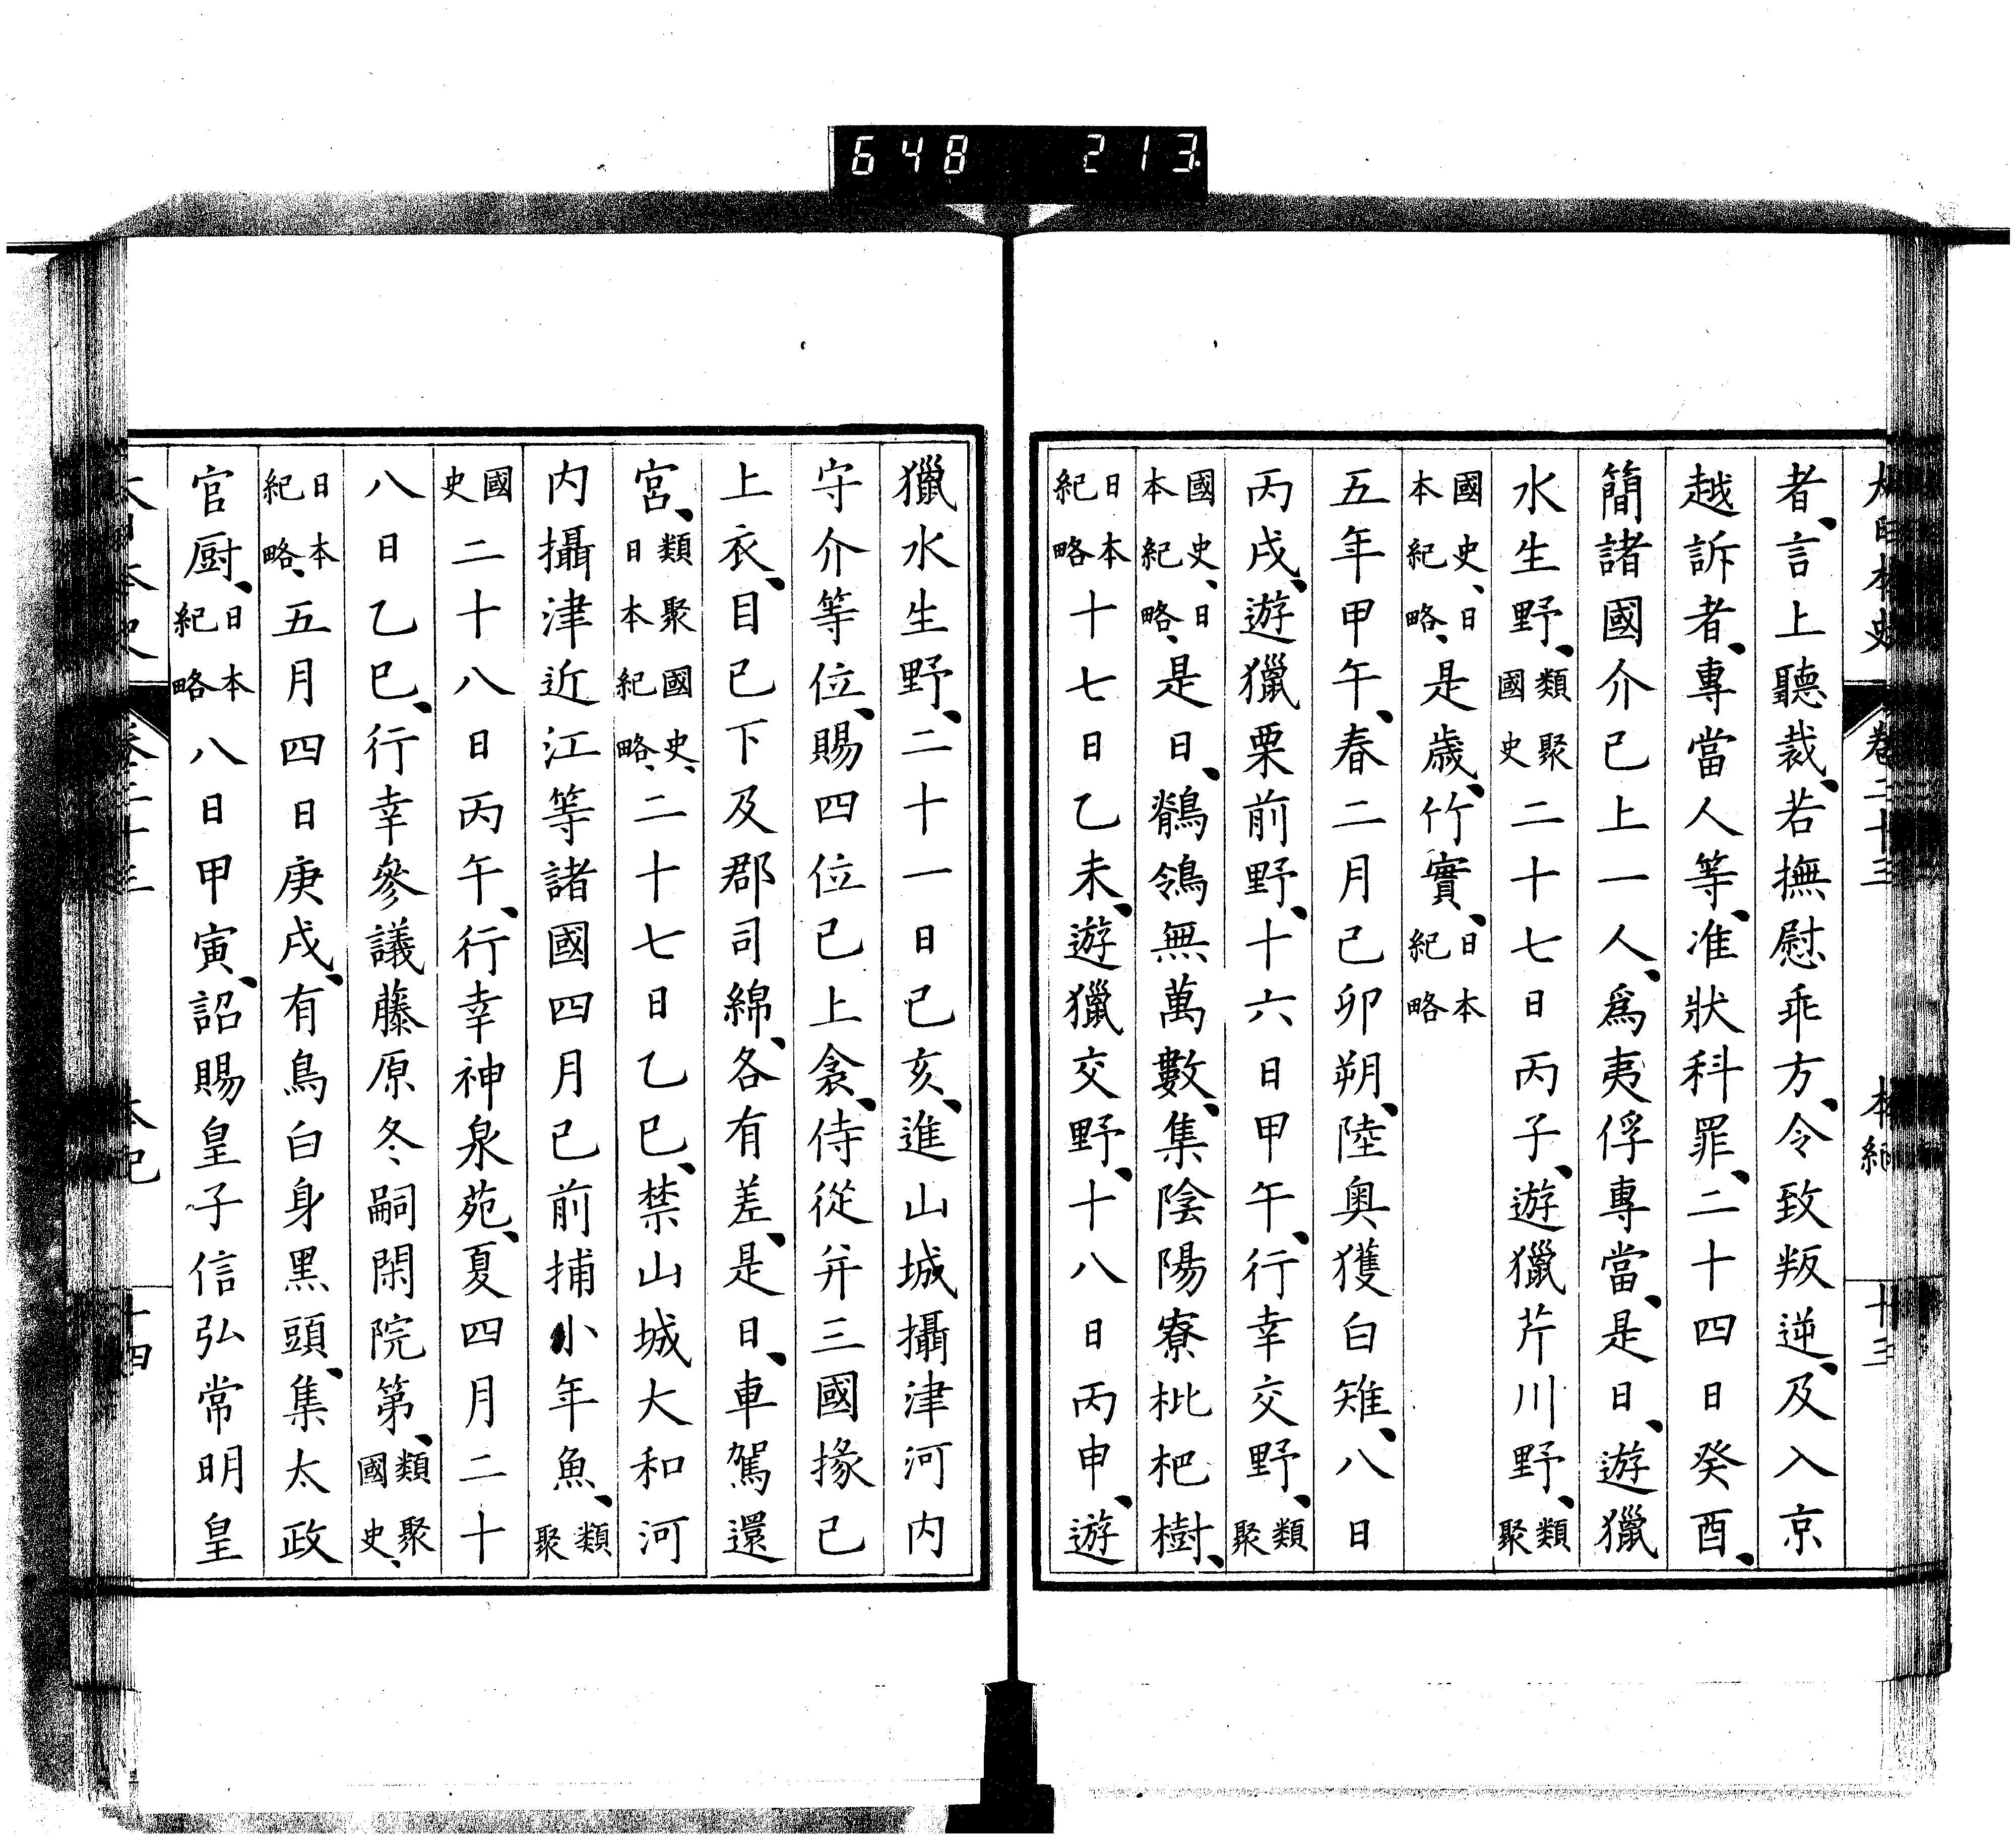 648 213
大日本史 卷二十三 本紀 十三
者、言上聽裁、若撫慰乖方、令致叛逆、及入京
越訴者、專當人等、准狀科罪、二十四日癸酉、
簡諸國介已上一人、爲夷俘專當、是日、遊獵
水生野、類聚國史二十七日丙子、遊獵芹川野、類聚
國史、日本紀略、是歲、竹實、日本紀略
五年甲午、春二月己卯朔、陸奧獲白雉、八日
丙戌、遊獵栗前野、十六日甲午、行幸交野、類聚
國史、日本紀略、是日、鶺鴒無萬數、集陰陽寮枇杷樹、
日本紀略十七日乙未、遊獵交野、十八日丙申、遊
獵水生野、二十一日己亥、進山城攝津河內
守介等位、賜四位已上衾、侍從并三國掾已
上衣、目已下及郡司綿、各有差、是日、車駕還
宮、類聚國史、日本紀略、二十七日乙巳、禁山城大和河
內攝津近江等諸國四月已前捕小年魚、類聚
國史二十八日丙午、行幸神泉苑、夏四月二十
八日乙巳、行幸參議藤原冬嗣閑院第、類聚國史、
日本紀略、五月四日庚戌、有鳥白身黑頭、集太政
官厨、日本紀略八日甲寅、詔賜皇子信弘常明皇
大日本史 卷二十三 本紀 十四